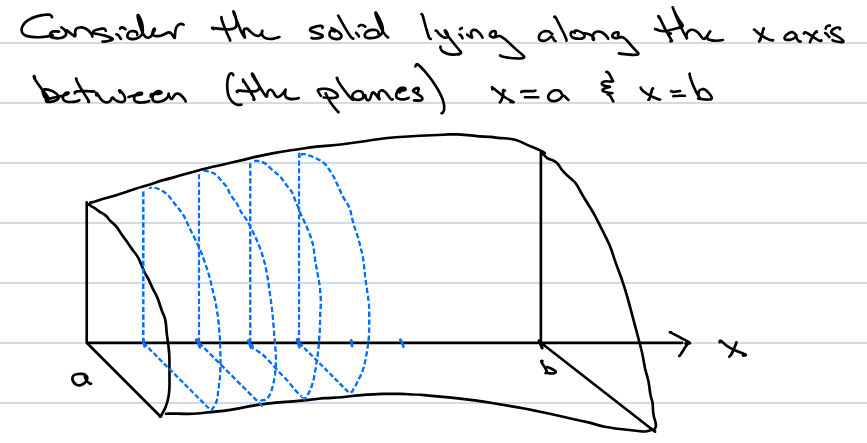 Consider the solid lying along the x axis
between (the planes) x=a & x=b
a
b
x